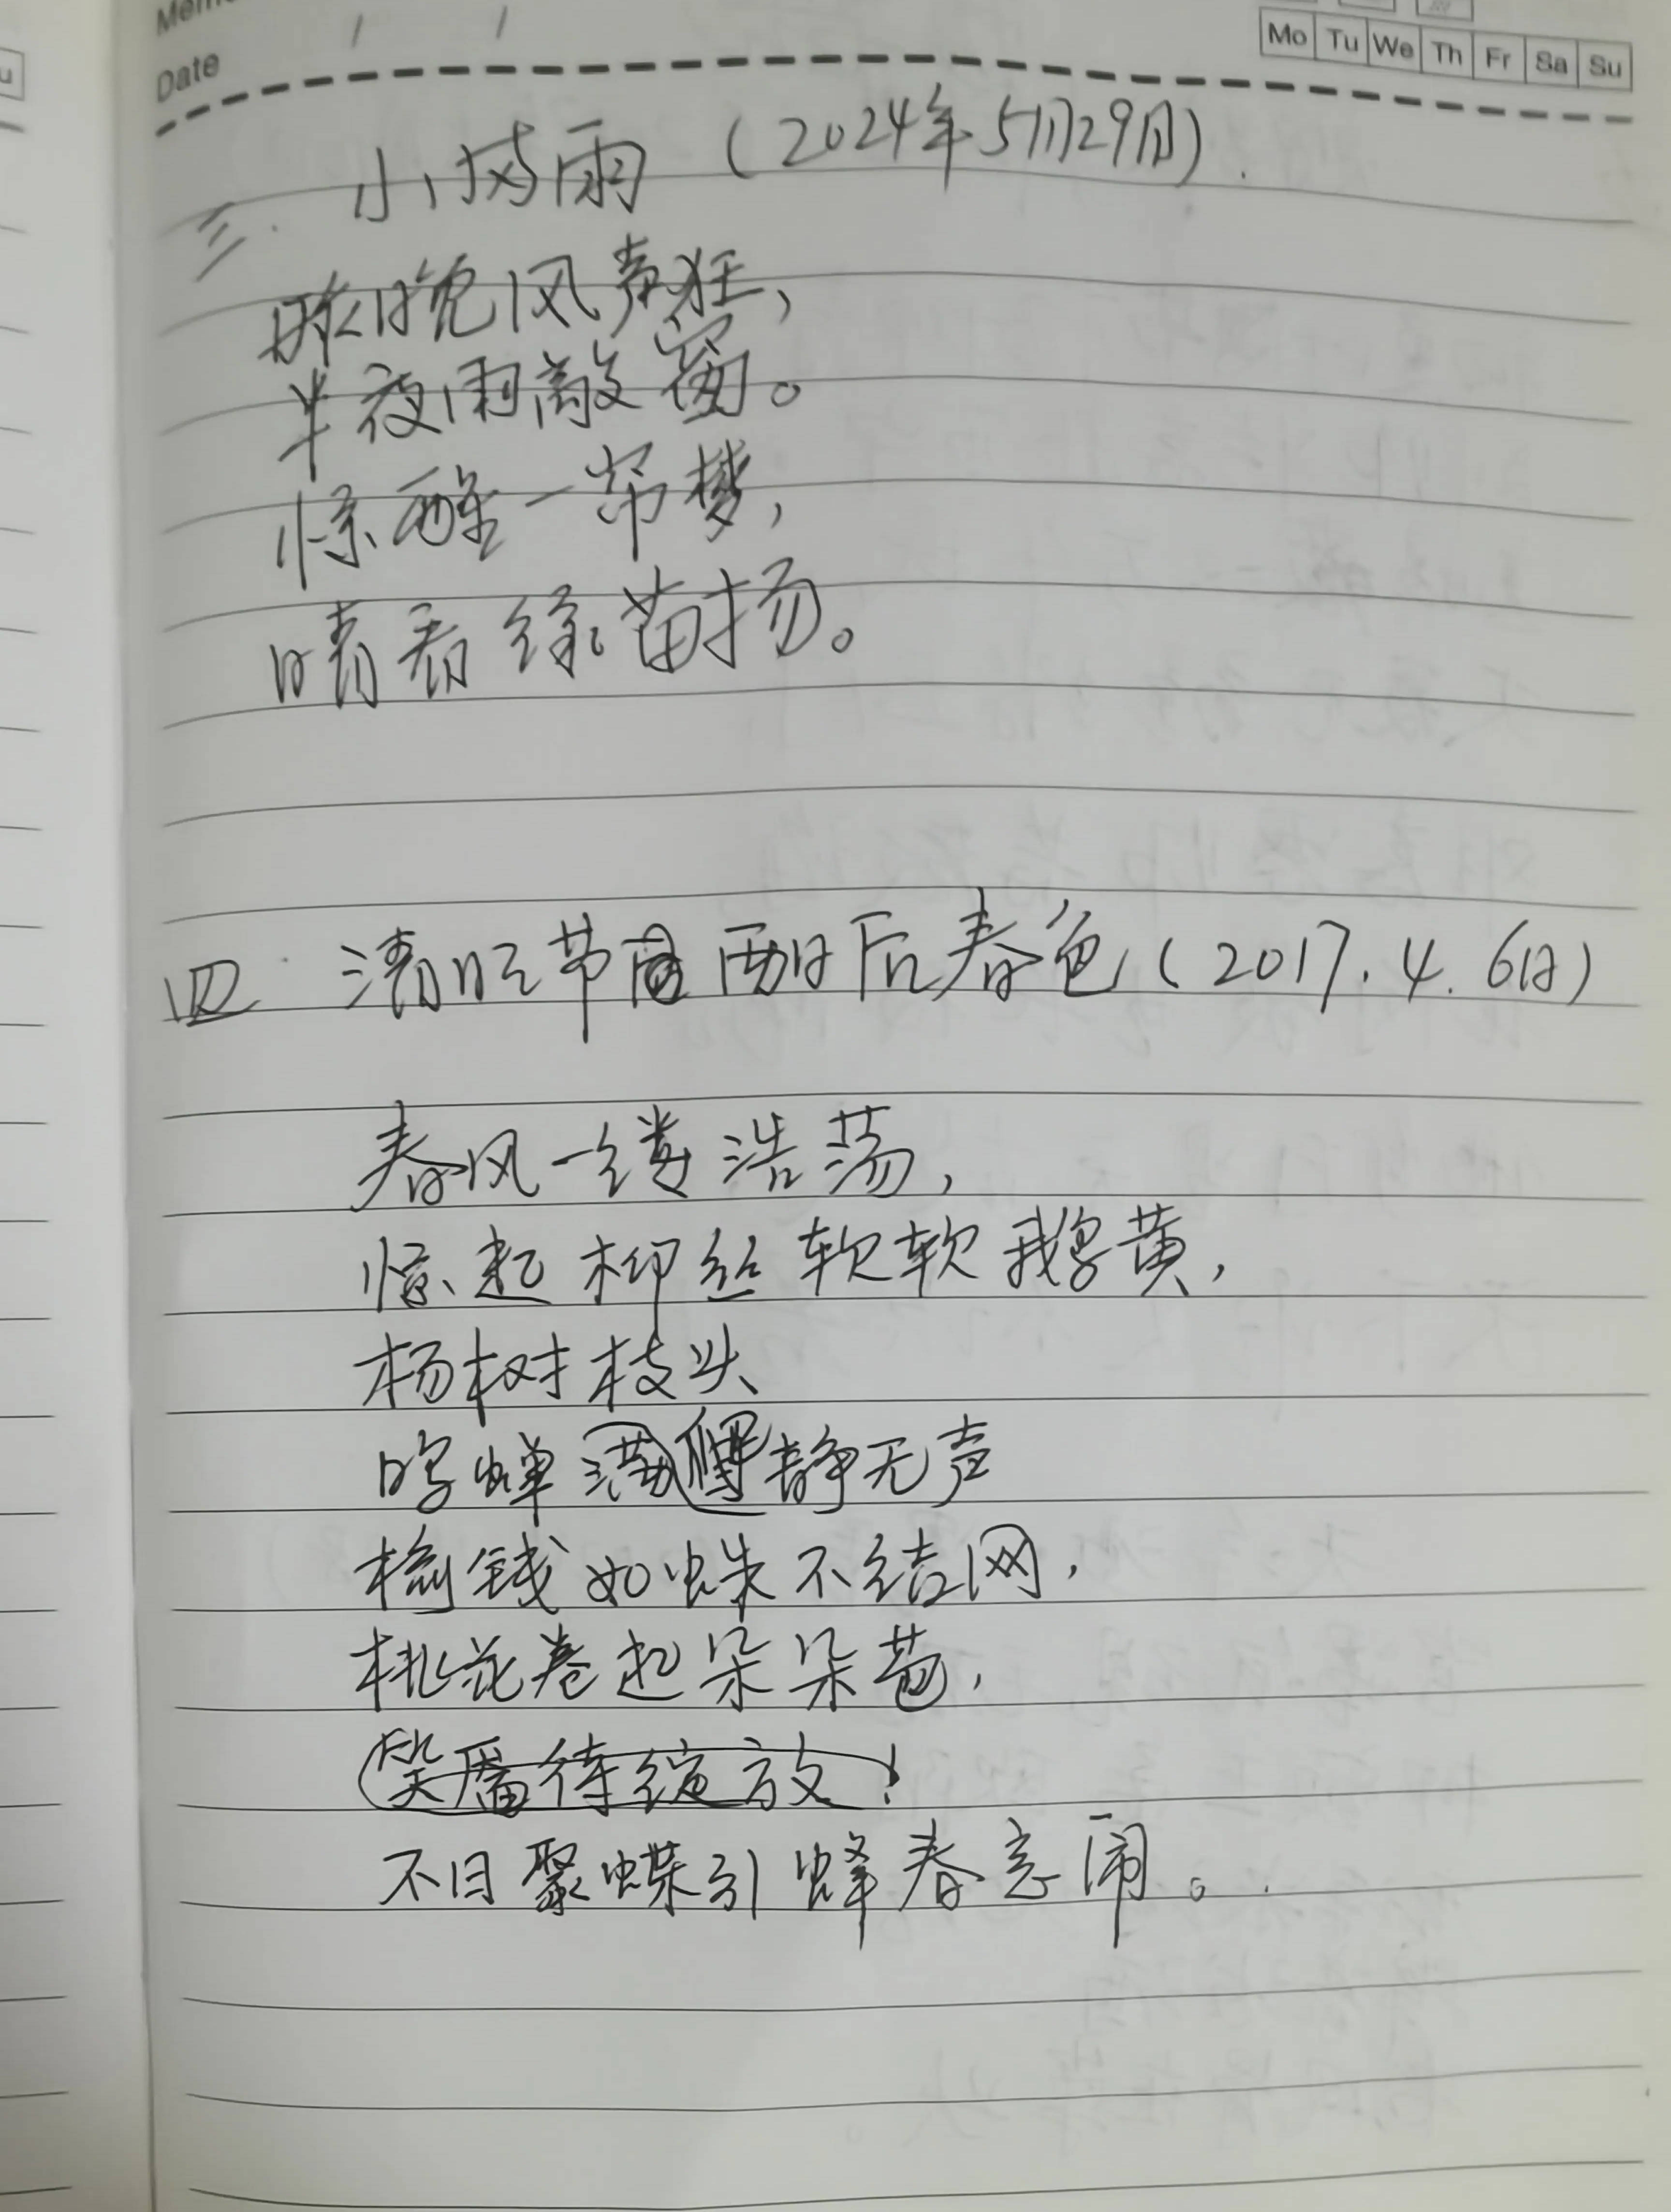 Mem
Date / /
Mo Tu We Th Fr Sa Su
三. 小风雨 (2024年5月29日).
昨晚风声狂,
半夜雨敲窗。
惊醒一帘梦,
晴看绿苗扬。
四. 清明节雨后春色(2017.4.6日)
春风一缕浩荡,
惊起柳丝软软鹅黄,
杨树枝头
鸣蝉满 静无声
榆钱如蛛不结网,
桃花卷起朵朵苞,
笑靥待绽放!
不日聚蝶引蜂春意闹。